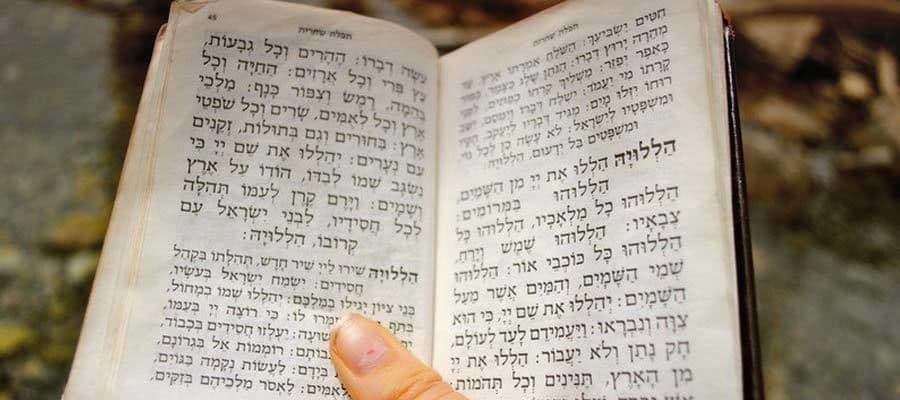 תפלת שחרית
חִטִּים יַשְׂבִּיעֵךְ: הַשֹּׁלֵחַ אִמְרָתוֹ אָרֶץ, עַד
מְהֵרָה יָרוּץ דְּבָרוֹ: הַנֹּתֵן שֶׁלֶג כַּצָּמֶר, כְּפוֹר
כָּאֵפֶר יְפַזֵּר: מַשְׁלִיךְ קַרְחוֹ כְפִתִּים, לִפְנֵי
קָרָתוֹ מִי יַעֲמֹד: יִשְׁלַח דְּבָרוֹ וְיַמְסֵם, יַשֵּׁב
רוּחוֹ יִזְּלוּ מָיִם: מַגִּיד דְּבָרָיו לְיַעֲקֹב, חֻקָּיו
וּמִשְׁפָּטָיו לְיִשְׂרָאֵל: לֹא עָשָׂה כֵן לְכָל גּוֹי
וּמִשְׁפָּטִים בַּל יְדָעוּם, הַלְלוּיָהּ:
הַלְלוּיָהּ הַלְלוּ אֶת יְיָ מִן הַשָּׁמַיִם,
הַלְלוּהוּ בַּמְּרוֹמִים:
הַלְלוּהוּ כָל מַלְאָכָיו, הַלְלוּהוּ כָּל
צְבָאָיו: הַלְלוּהוּ שֶׁמֶשׁ וְיָרֵחַ,
הַלְלוּהוּ כָּל כּוֹכְבֵי אוֹר: הַלְלוּהוּ
שְׁמֵי הַשָּׁמָיִם, וְהַמַּיִם אֲשֶׁר מֵעַל
הַשָּׁמָיִם: יְהַלְלוּ אֶת שֵׁם יְיָ, כִּי הוּא
צִוָּה וְנִבְרָאוּ: וַיַּעֲמִידֵם לָעַד לְעוֹלָם,
חָק נָתַן וְלֹא יַעֲבוֹר: הַלְלוּ אֶת יְיָ
מִן הָאָרֶץ, תַּנִּינִים וְכָל תְּהֹמוֹת:
תפלת שחרית
45
עֹשָׂה דְבָרוֹ: הֶהָרִים וְכָל גְּבָעוֹת,
עֵץ פְּרִי וְכָל אֲרָזִים: הַחַיָּה וְכָל
בְּהֵמָה, רֶמֶשׂ וְצִפּוֹר כָּנָף: מַלְכֵי
אֶרֶץ וְכָל לְאֻמִּים, שָׂרִים וְכָל שֹׁפְטֵי
אָרֶץ: בַּחוּרִים וְגַם בְּתוּלוֹת, זְקֵנִים
עִם נְעָרִים: יְהַלְלוּ אֶת שֵׁם יְיָ כִּי
נִשְׂגָּב שְׁמוֹ לְבַדּוֹ, הוֹדוֹ עַל אֶרֶץ
וְשָׁמָיִם: וַיָּרֶם קֶרֶן לְעַמּוֹ תְּהִלָּה
לְכָל חֲסִידָיו, לִבְנֵי יִשְׂרָאֵל עַם
קְרוֹבוֹ, הַלְלוּיָהּ:
הַלְלוּיָהּ שִׁירוּ לַייָ שִׁיר חָדָשׁ, תְּהִלָּתוֹ בִּקְהַל
חֲסִידִים: יִשְׂמַח יִשְׂרָאֵל בְּעֹשָׂיו,
בְּנֵי צִיּוֹן יָגִילוּ בְמַלְכָּם: יְהַלְלוּ שְׁמוֹ בְמָחוֹל,
בְּתֹף יְזַמְּרוּ לוֹ: כִּי רוֹצֶה יְיָ בְּעַמּוֹ,
בִּישׁוּעָה: יַעְלְזוּ חֲסִידִים בְּכָבוֹד,
רוֹמְמוֹת אֵל בִּגְרוֹנָם,
בְּיָדָם: לַעֲשׂוֹת נְקָמָה בַּגּוֹיִם,
לֶאְסֹר מַלְכֵיהֶם בְּזִקִּים,